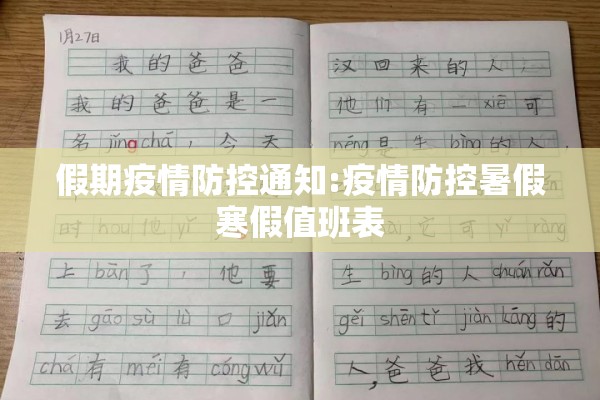 假期疫情防控通知:疫情防控暑假
寒假值班表
1月27日
我的爸爸
我的爸爸是一
名jǐngchá，今天
时hou他yǐ
上bān了，他要
去gāosù lù口jiǎn
chá有méi有cóngwǔ
汉回来的人，
他们有一xiē可
néng是生bìng的人，
，它可yǐ ràng
生bìng的人chuánrǎn
gěi shēntǐ jiànkāng的
人，爸爸我hěn dān